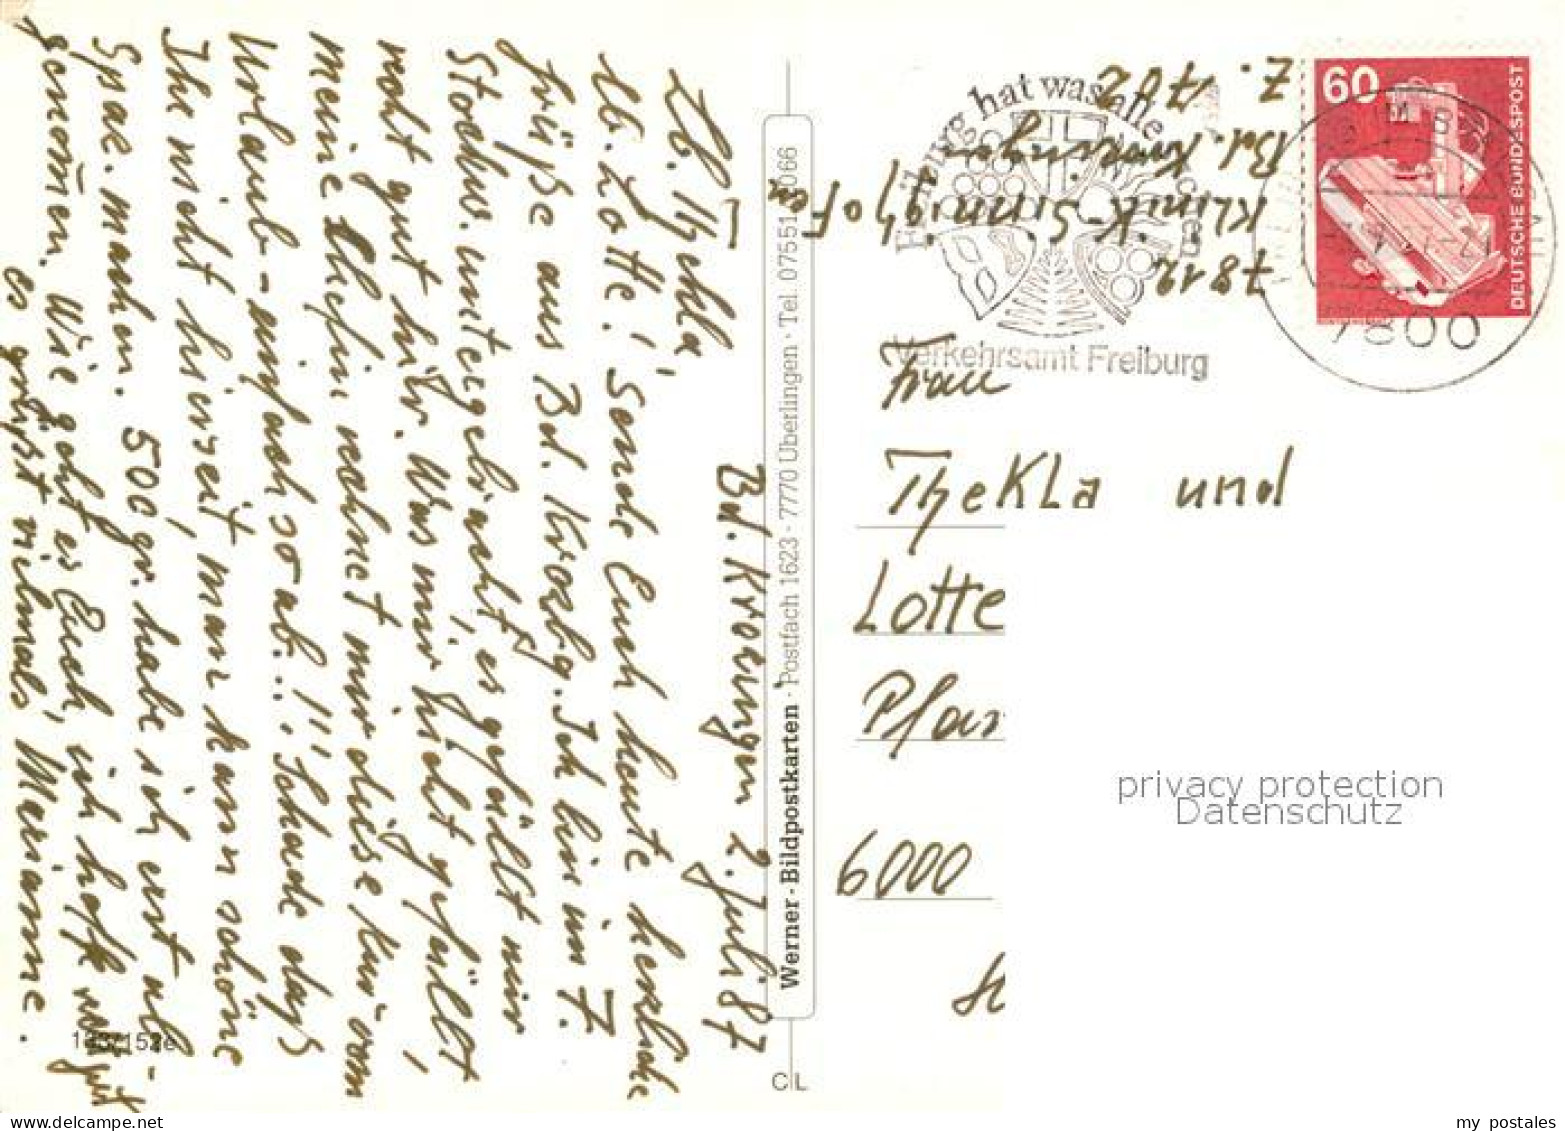 Bd. Krozingen 2. Juli 87
Lb. Thekla,
lb. Lotte! Sende Euch heute herzliche
Grüße aus Bd. Krozbg. Ich bin im 7.
Stockw. untergebracht, es gefällt mir
recht gut hier. Was mir nicht gefällt,
meine Chefin rechnet mir diese Kur vom
Urlaub - einfach so ab..!! Schade daß
Ihr nicht hier seit, man kann schöne
Spaz. machen. 500 gr. habe ich erst ab-
genom̄en. Wie geht es Euch, ich hoffe gut
es grüßt vielmals Marianne.
133/152e
Werner · Bildpostkarten · Postfach 1623 · 7770 Überlingen · Tel. 07551 066
CL
Z. 702
Bd. Krozingen
Klinik-Sinnighofen
7812
Freiburg hat was alle
Verkehrsamt Freiburg
60
DEUTSCHE BUNDESPOST
7800
Frau
Thekla und
Lotte
Pfar
6000
privacy protection
Datenschutz
my postales